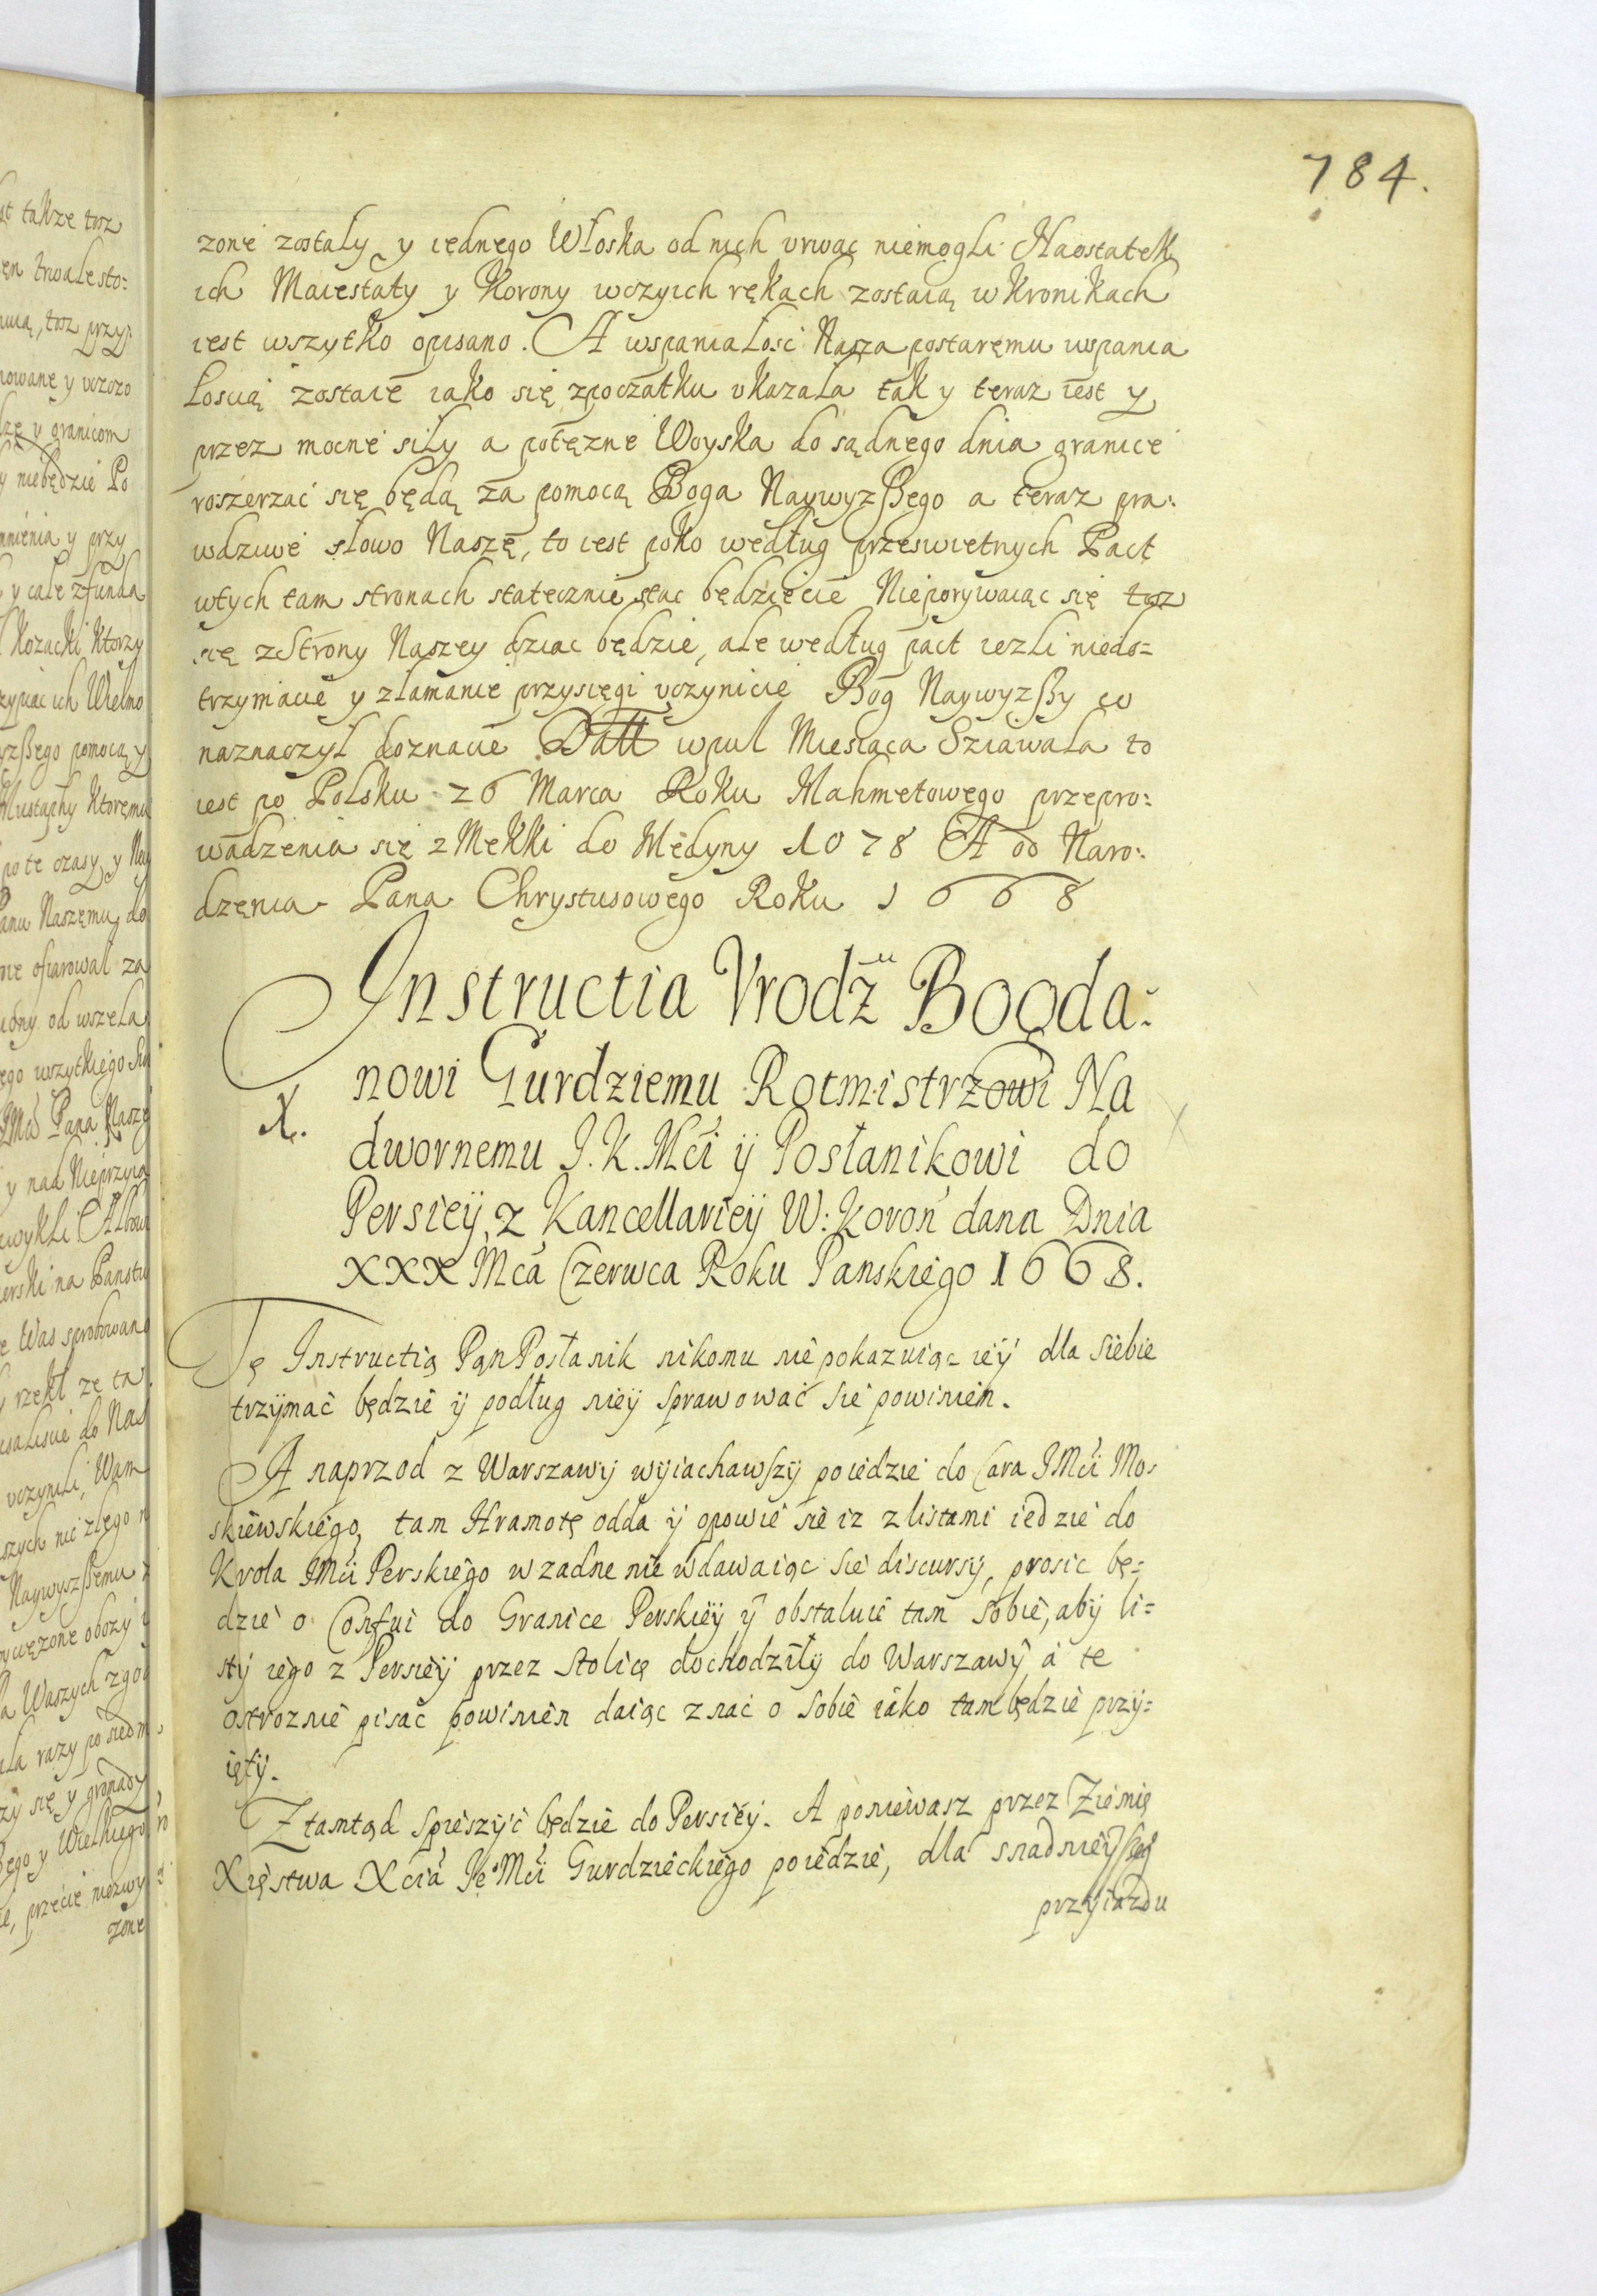 784.
zone zostały y iednego Włoska od nich vrwac niemogli Naostatek
ich Maiestaty y Korony wczyich rękach zostaią w Kronikach
iest wszytko opisano. A wspaniałosc Nasza postaremu wspania
łoscią zostaie iako się zpoczatku vkazała tak y teraz iest y
przez mocne siły a potęzne Woyska do sądnego dnia granice
roszerzac się będą za pomocą Boga Naywyzszego a teraz pra:
wdziwe słowo Nasze, to iest poko według przeswietnych Pact
wtych tam stronach statecznie stac będziecie Nieporywaiąc się tosz
się zStrony Naszey dziac będzie, ale według pact iezli niedo=
trzymacie y złamanie przysięgi vczynicie Bog Naywyzszy co
naznaczył doznacie Datt wpuł Miesiąca Sziawala to
iest po Polsku 26 Marca Roku Mahmetowego przepro:
wadzenia się z Mekki do Medyny 1078 A od Naro:
dzenia Pana Chrystusowego Roku 1668
Instructia Vrodz̃u Bogda:
nowi Gurdziemu Rotmistrzowi Na
X.
dwornemu J.K.Mći ÿ Posłanikowi do
Persieÿ, z Kancellarieÿ W: Koron dana Dnia
XXX Mca Czerwca Roku Panskiego 1668.
Tę Instructią Pan Posłanik nikomu nie pokazuiąc ieÿ dla siebie
trzÿmac będzie ÿ podług nieÿ sprawowac sie powinien.
A naprzod z Warszawÿ wÿiachawszÿ poiedzie do Cara JMći Mos
skiewskiego, tam Hramotę odda ÿ opowie sie iz z listami iedzie do
Krola JMći Perskiego w zadne nie wdawaiąc sie discursÿ, prosic bę=
dzie o Confui do Granice Perskieÿ ÿ obstaluie tam sobie, abÿ li=
stÿ iego z Persieÿ przez stolicę dochodziłÿ do Warszawÿ a te
ostroznie pisac powinien daiąc znac o sobie iako tam będzie przÿ=
iętÿ.
Ztamtąd spieszÿc będzie do Persieÿ. A poniewasz przez Ziemię
Xięstwa Xcia Je Mći Gurdzieckiego poiedzie, dla snadnieÿszeg
przÿiazdu